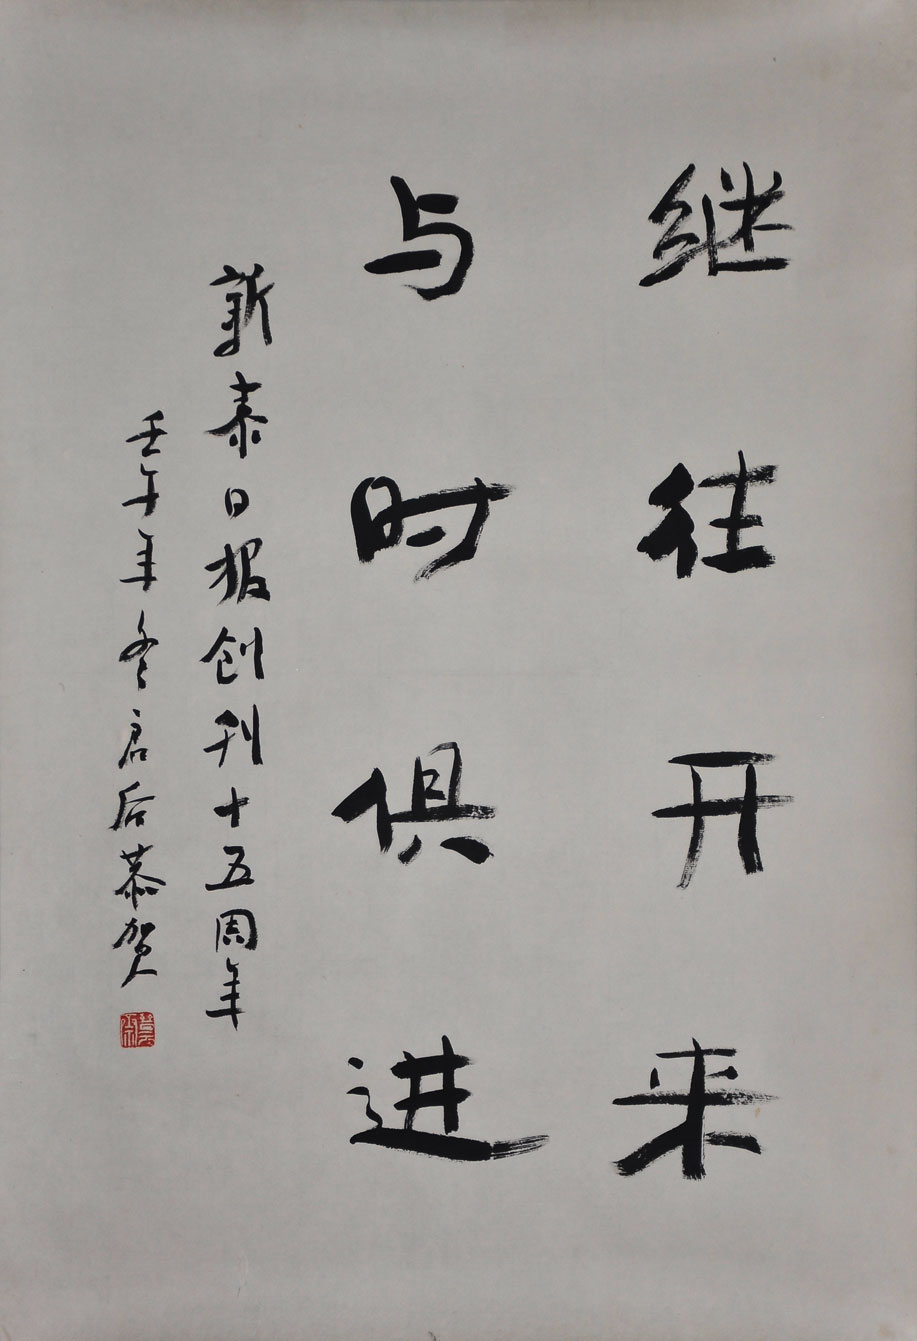 继往开来
与时俱进
新泰日报创刊十五周年
壬午年冬启后恭贺